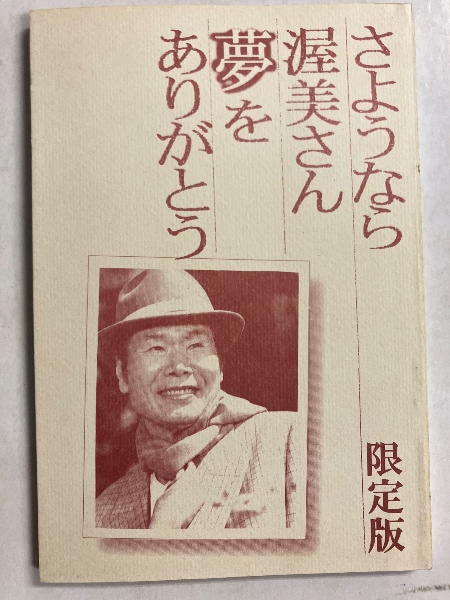 さようなら
渥美さん
夢を
ありがとう
限定版